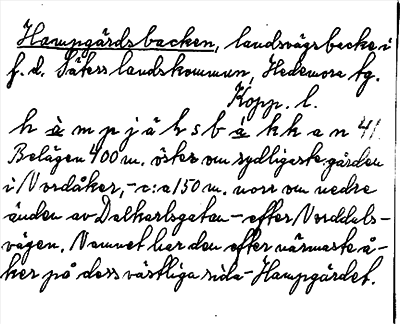 Hampgärdsbacken, landsvägsbacke i
f. d. Säters landskommun, Hedemora tg.
Kopp. l.
h à m p j ä ʈ s b à k k a n 41.
Belägen 400 m. öster om sydligaste gården
i Nordåker, - c:a 150 m. norr om nedre
änden av Dalkarlsgatan - efter Norddals-
vägen. Namnet har den efter närmaste å-
ker på dess västliga sida - Hampgärdet.